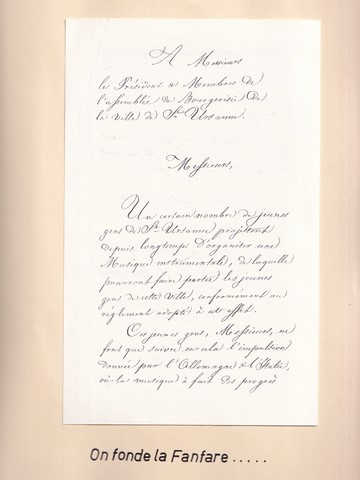 A Messieurs
les Président & Membres de
l'assemblée de Bourgeoisie de
la Ville de St. Ursanne.
Messieurs,
Un certain nombre de jeunes
gens de St. Ursanne projettent
depuis longtemps d'organiser une
Musique instrumentale, de laquelle
pourront faire partie les jeunes
gens de cette Ville, conformément au
règlement adopté à cet effet.
Ces jeunes gens, Messieurs, ne
font que suivre en cela l'impulsion
donnée par l'Allemagne & l'Italie,
où la musique a fait des progrès
On fonde la Fanfare.....